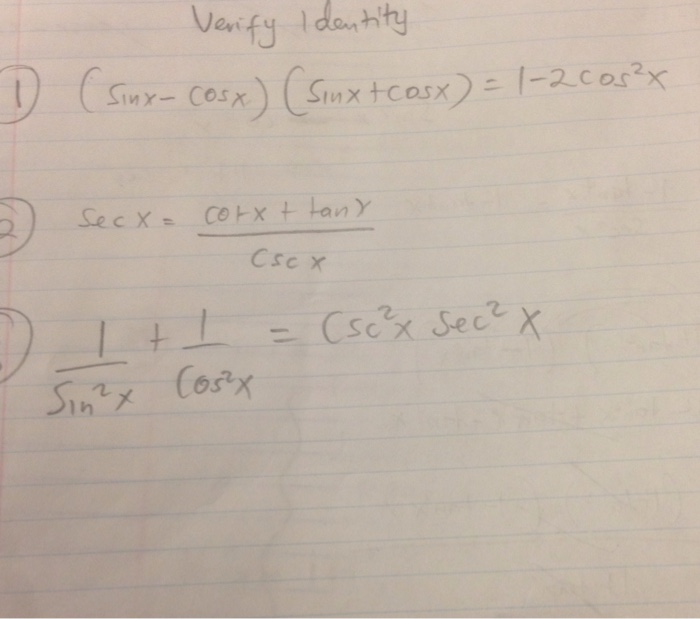 Verify Identity
1 (sinx - cosx) (sinx + cosx) = 1 - 2 cos²x
2 sec x = cotx + tanx
csc x
1 + 1 = csc²x sec²x
sin²x cos²x